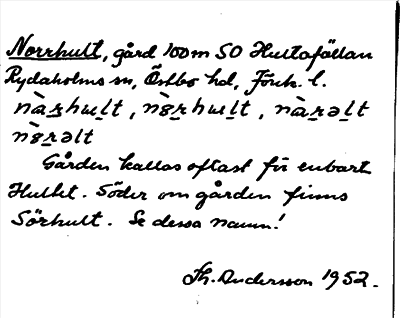 Norrhult, gård 100 m SO Hultafällan
Rydaholms sn, Östbo hd, Jönk. l.
nàrhult, nèrhult, nàrəlt
nèrəlt
Gården kallas oftast för enbart
Hultet. Söder om gården finns
Sörhult. Se dessa namn!
Th. Andersson 1952.